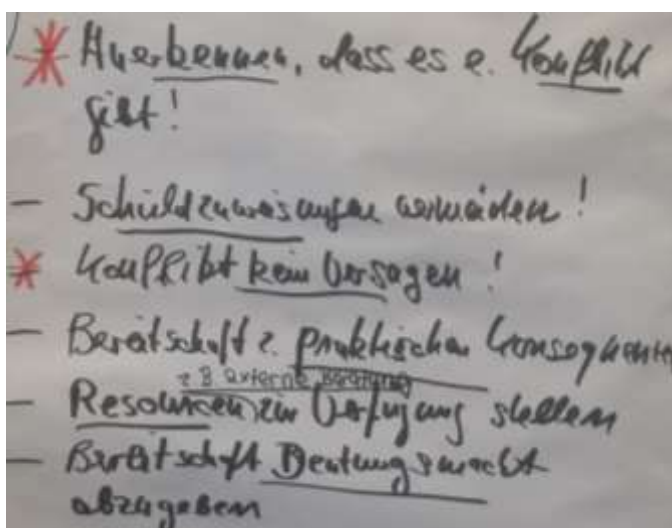 * Anerkennen, dass es e. Konflikt
gibt!
- Schuldzuweisungen vermeiden!
* Konflikt kein Versagen!
- Bereitschaft z. praktischen Konsequenzen
z B externe Beratung
- Resourcen zur Verfügung stellen
- Bereitschaft Deutungsmacht
abzugeben